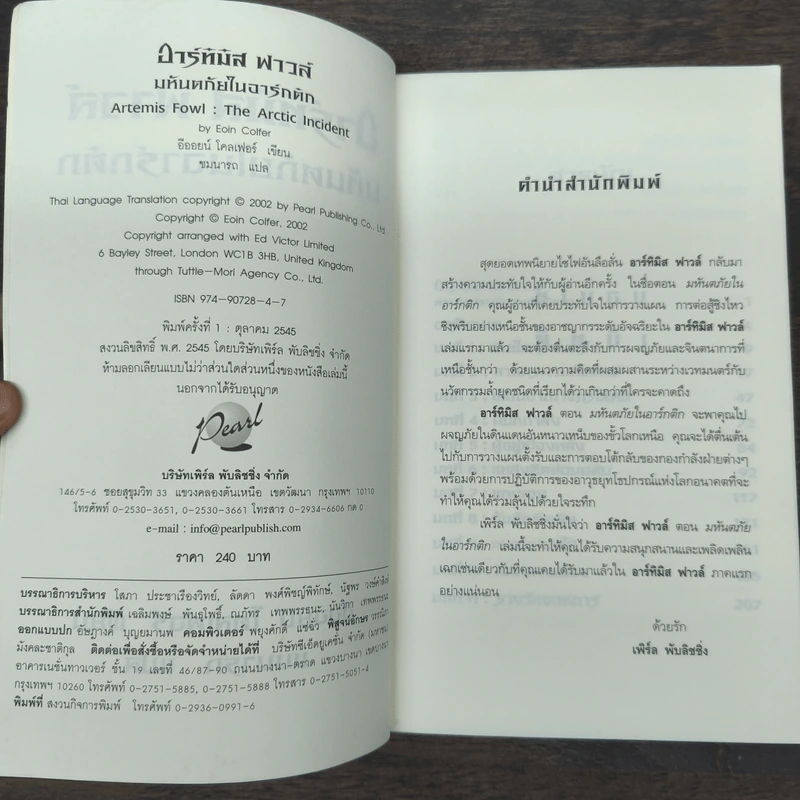 อาร์ทิมิส ฟาวล์
มหันตภัยในอาร์กติก
Artemis Fowl : The Arctic Incident
by Eoin Colfer
อีออยน์ โคลเฟอร์ เขียน
ชมนารถ แปล
Thai Language Translation copyright © 2002 by Pearl Publishing Co., Ltd.
Copyright © Eoin Colfer, 2002
Copyright arranged with Ed Victor Limited
6 Bayley Street, London WC1B 3HB, United Kingdom
through Tuttle-Mori Agency Co., Ltd.
ISBN 974-90728-4-7
พิมพ์ครั้งที่ 1 : ตุลาคม 2545
สงวนลิขสิทธิ์ พ.ศ. 2545 โดยบริษัทเพิร์ล พับลิชชิ่ง จำกัด
ห้ามลอกเลียนแบบไม่ว่าส่วนใดส่วนหนึ่งของหนังสือเล่มนี้
นอกจากได้รับอนุญาต
Pearl
บริษัทเพิร์ล พับลิชชิ่ง จำกัด
146/5-6 ซอยสุขุมวิท 33 แขวงคลองตันเหนือ เขตวัฒนา กรุงเทพฯ 10110
โทรศัพท์ 0-2530-3651, 0-2661-3661 โทรสาร 0-2934-6606 กด 0
e-mail : info@pearlpublish.com
ราคา 240 บาท
บรรณาธิการบริหาร โสภา ประชาเรืองวิทย์, ลัดดา พงศ์พิชญ์พิทักษ์, นัฐพร
บรรณาธิการสำนักพิมพ์ เฉลิมพงษ์ พันธุโพธิ์, ณภัทร เทพพรรธนะ, นันวิกา เทพพรรธนะ
ออกแบบปก อัษฎางค์ บุญยมานพ คอมพิวเตอร์ พยุงศักดิ์ แซ่ฉั่ว พิสูจน์อักษร วรรณิภา
มังคละชาติกุล ติดต่อเพื่อสั่งซื้อหรือจัดจำหน่ายได้ที่ บริษัทซีเอ็ดยูเคชั่น จำกัด (มหาชน)
อาคารเนชั่นทาวเวอร์ ชั้น 19 เลขที่ 46/87-90 ถนนบางนา-ตราด แขวงบางนา เขตบางนา
กรุงเทพฯ 10260 โทรศัพท์ 0-2751-5885, 0-2751-5888 โทรสาร 0-2751-5051-4
พิมพ์ที่ สงวนกิจการพิมพ์ โทรศัพท์ 0-2936-0991-6
คำนำสำนักพิมพ์
สุดยอดเทพนิยายไซไฟอันลือลั่น อาร์ทิมิส ฟาวล์ กลับมา
สร้างความประทับใจให้กับผู้อ่านอีกครั้ง ในชื่อตอน มหันตภัยใน
อาร์กติก คุณผู้อ่านที่เคยประทับใจในการวางแผน การต่อสู้ชิงไหว
ชิงพริบอย่างเหนือชั้นของอาชญากรระดับอัจฉริยะใน อาร์ทิมิส ฟาวล์
เล่มแรกมาแล้ว จะต้องตื่นตะลึงกับการผจญภัยและจินตนาการที่
เหนือชั้นกว่า ด้วยแนวความคิดที่ผสมผสานระหว่างเวทมนตร์กับ
นวัตกรรมล้ำยุคชนิดที่เรียกได้ว่าเกินกว่าที่ใครจะคาดถึง
อาร์ทิมิส ฟาวล์ ตอน มหันตภัยในอาร์กติก จะพาคุณไป
ผจญภัยในดินแดนอันหนาวเหน็บของขั้วโลกเหนือ คุณจะได้ตื่นเต้น
ไปกับการวางแผนตั้งรับและการตอบโต้กลับของกองกำลังฝ่ายต่างๆ
พร้อมด้วยการปฏิบัติการของอาวุธยุทโธปกรณ์แห่งโลกอนาคตที่จะ
ทำให้คุณได้ร่วมลุ้นไปด้วยใจระทึก
เพิร์ล พับลิชชิ่งมั่นใจว่า อาร์ทิมิส ฟาวล์ ตอน มหันตภัย
ในอาร์กติก เล่มนี้จะทำให้คุณได้รับความสนุกสนานและเพลิดเพลิน
เฉกเช่นเดียวกับที่คุณเคยได้รับมาแล้วใน อาร์ทิมิส ฟาวล์ ภาคแรก
อย่างแน่นอน
ด้วยรัก
เพิร์ล พับลิชชิ่ง